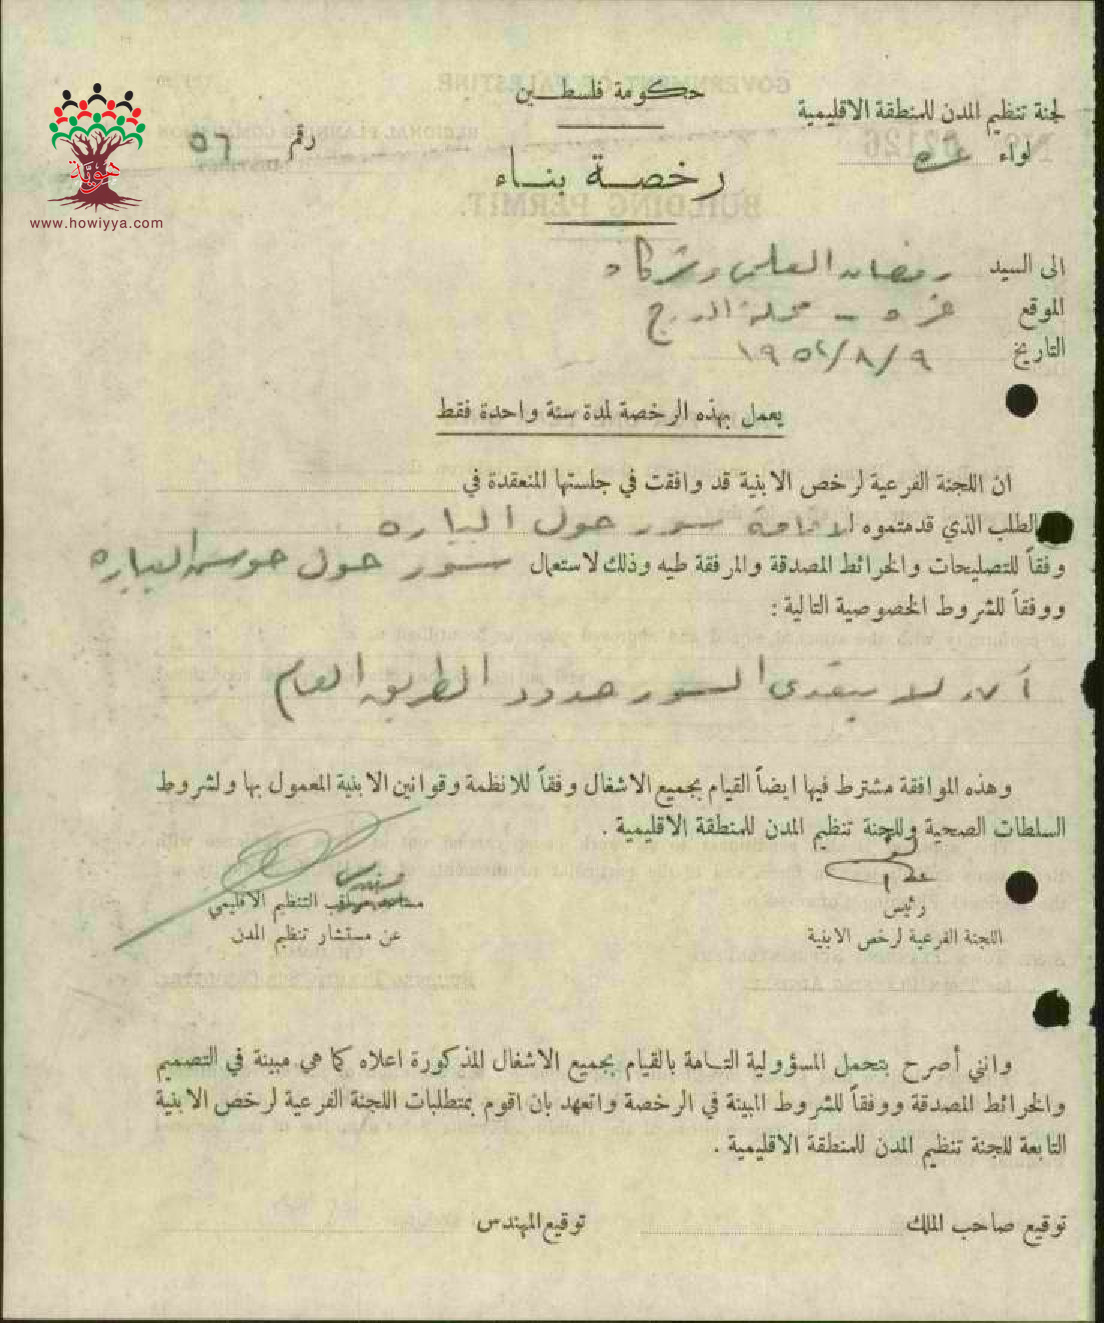 حكومة فلسطين
لجنة تنظيم المدن للمنطقة الاقليمية
لواء غزة
رقم ٥٦
رخصة بناء
هوية
www.howiyya.com
الى السيد رمضان العلمي وشركاه
الموقع غزه - محلة الدرج
التاريخ ٩/٨/١٩٥٢
يعمل بهذه الرخصة لمدة سنة واحدة فقط
ان اللجنة الفرعية لرخص الابنية قد وافقت في جلستها المنعقدة في
الطلب الذي قدمتموه لاقامة سور حول البياره
وفقاً للتصليحات والخرائط المصدقة والمرفقة طيه وذلك لاستعمال سور حول البياره
ووفقاً للشروط الخصوصية التالية :
لا يتعدى السور حدود الطريق العام
وهذه الموافقة مشترط فيها ايضاً القيام بجميع الاشغال وفقاً للانظمة وقوانين الابنية المعمول بها ولشروط
السلطات الصحية وللجنة تنظيم المدن للمنطقة الاقليمية .
رئيس
اللجنة الفرعية لرخص الابنية
التنظيم الاقليمي
عن مستشار تنظيم المدن
وانني أصرح بتحمل المسؤولية التامة بالقيام بجميع الاشغال المذكورة اعلاه كما هي مبينة في التصميم
والخرائط المصدقة ووفقاً للشروط المبينة في الرخصة واتعهد بان اقوم بمتطلبات اللجنة الفرعية لرخص الابنية
التابعة للجنة تنظيم المدن للمنطقة الاقليمية .
توقيع صاحب الملك
توقيع المهندس